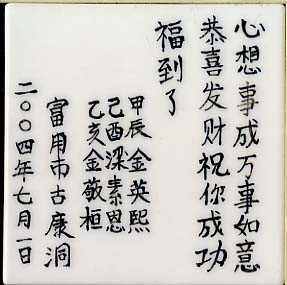 心想事成万事如意
恭喜发财祝你成功
福到了
甲辰金英熙
己酉梁素恩
乙亥金敬桓
富用市古康洞
二〇〇四年七月一日